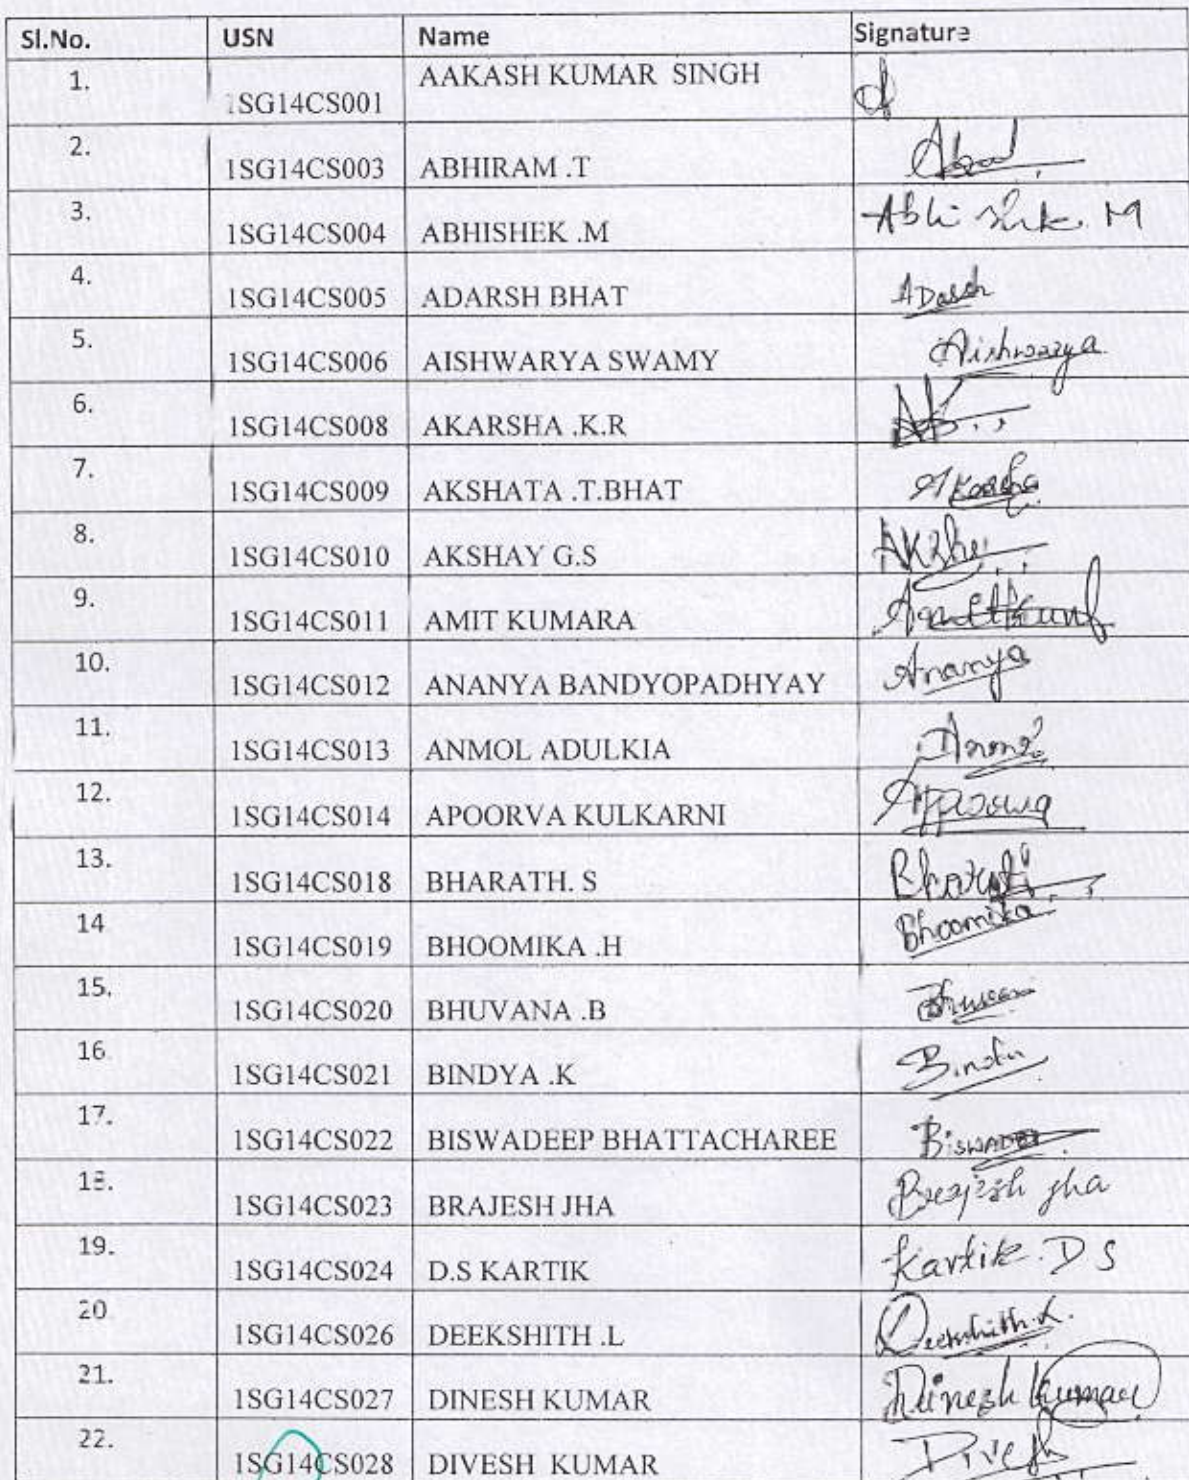 Sl.No. USN Name Signature
1. 1SG14CS001 AAKASH KUMAR SINGH
2. 1SG14CS003 ABHIRAM .T
3. 1SG14CS004 ABHISHEK .M Abhishek. M
4. 1SG14CS005 ADARSH BHAT ADarsh
5. 1SG14CS006 AISHWARYA SWAMY Aishwarya
6. 1SG14CS008 AKARSHA .K.R
7. 1SG14CS009 AKSHATA .T.BHAT
8. 1SG14CS010 AKSHAY G.S
9. 1SG14CS011 AMIT KUMARA
10. 1SG14CS012 ANANYA BANDYOPADHYAY Ananya
11. 1SG14CS013 ANMOL ADULKIA
12. 1SG14CS014 APOORVA KULKARNI
13. 1SG14CS018 BHARATH. S
14 1SG14CS019 BHOOMIKA .H Bhoomika
15. 1SG14CS020 BHUVANA .B
16. 1SG14CS021 BINDYA .K
17. 1SG14CS022 BISWADEEP BHATTACHAREE
18. 1SG14CS023 BRAJESH JHA Brajesh jha
19. 1SG14CS024 D.S KARTIK Kartik. D S
20. 1SG14CS026 DEEKSHITH .L Deekshith.L.
21. 1SG14CS027 DINESH KUMAR Dinesh Kumar
22. 1SG14CS028 DIVESH KUMAR Divesh